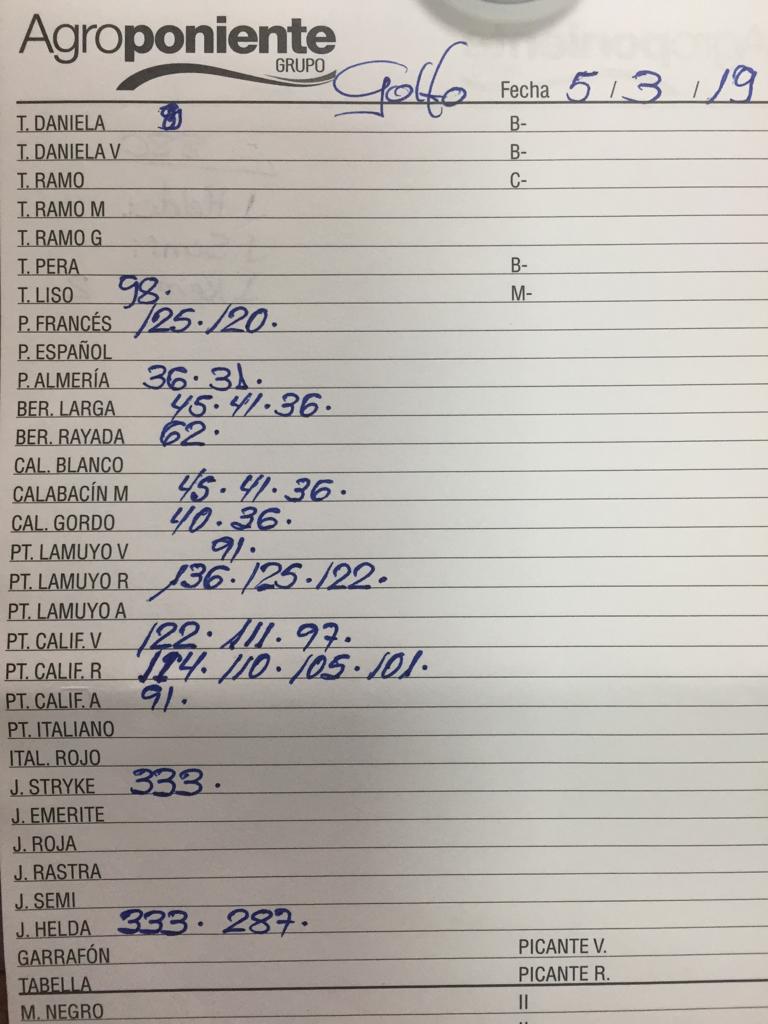 Agroponiente
GRUPO
Golfo Fecha 5/3/19
T. DANIELA B-
T. DANIELA V B-
T. RAMO C-
T. RAMO M
T. RAMO G
T. PERA B-
T. LISO 98. M-
P. FRANCÉS 125. 120.
P. ESPAÑOL
P. ALMERÍA 36. 31.
BER. LARGA 45. 41. 36.
BER. RAYADA 62.
CAL. BLANCO
CALABACÍN M 45. 41. 36.
CAL. GORDO 40. 36.
PT. LAMUYO V 91.
PT. LAMUYO R 136. 125. 122.
PT. LAMUYO A
PT. CALIF. V 122. 111. 97.
PT. CALIF. R 114. 110. 105. 101.
PT. CALIF. A 91.
PT. ITALIANO
ITAL. ROJO
J. STRYKE 333.
J. EMERITE
J. ROJA
J. RASTRA
J. SEMI
J. HELDA 333. 287.
GARRAFÓN PICANTE V.
TABELLA PICANTE R.
M. NEGRO II